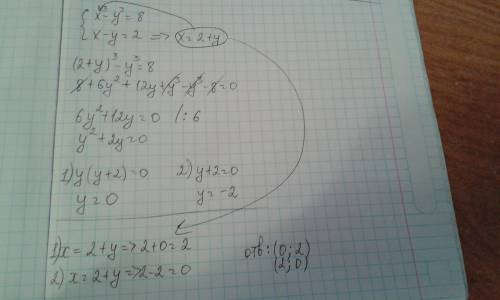 {x³-y³=8
{x-y=2 => x=2+y
(2+y)³-y³=8
8+6y²+12y+y³-y³-8=0
6y²+12y=0 /:6
y²+2y=0
1) y(y+2)=0 2) y+2=0
y=0 y=-2
1) x=2+y=>2+0=2
2) x=2+y=>2-2=0
отв: (0;2)
(2;0)